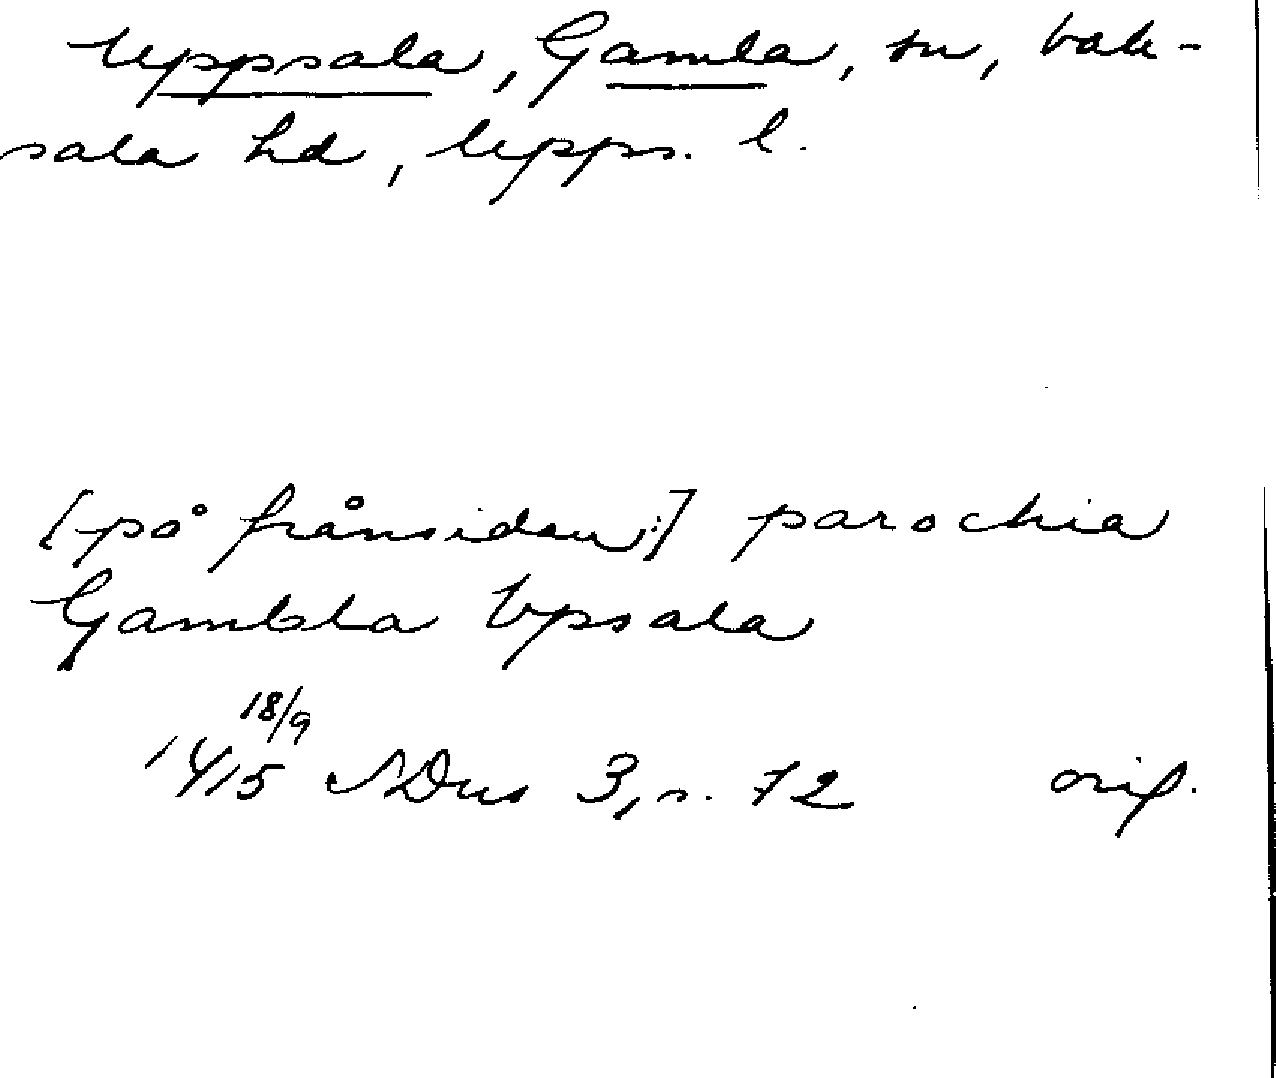 Uppsala, Gamla, sn, Vak-
sala hd, Upps. l.
[på frånsidan:] parochia
Gambla Vpsala
1415 18/9 SDns 3, s. 72 orig.